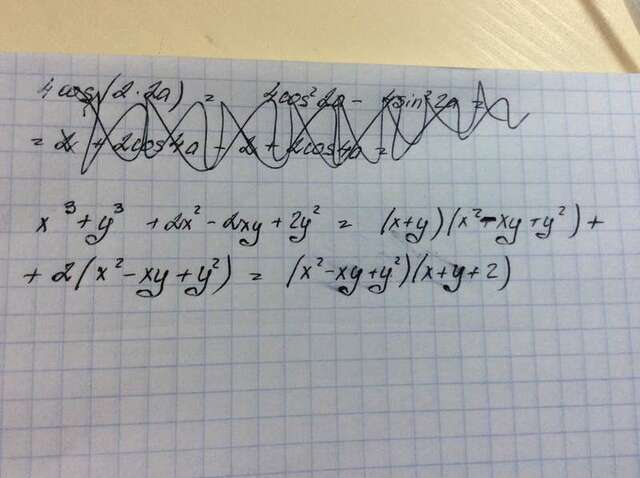 4cos(2·2a) = 4cos²2a - 4sin²2a =
= 2 + 2cos4a - 2 + 2cos4a =
x³+y³ +2x² - 2xy + 2y² = (x+y)(x²-xy+y²)+
+ 2(x²-xy+y²) = (x²-xy+y²)(x+y+2)